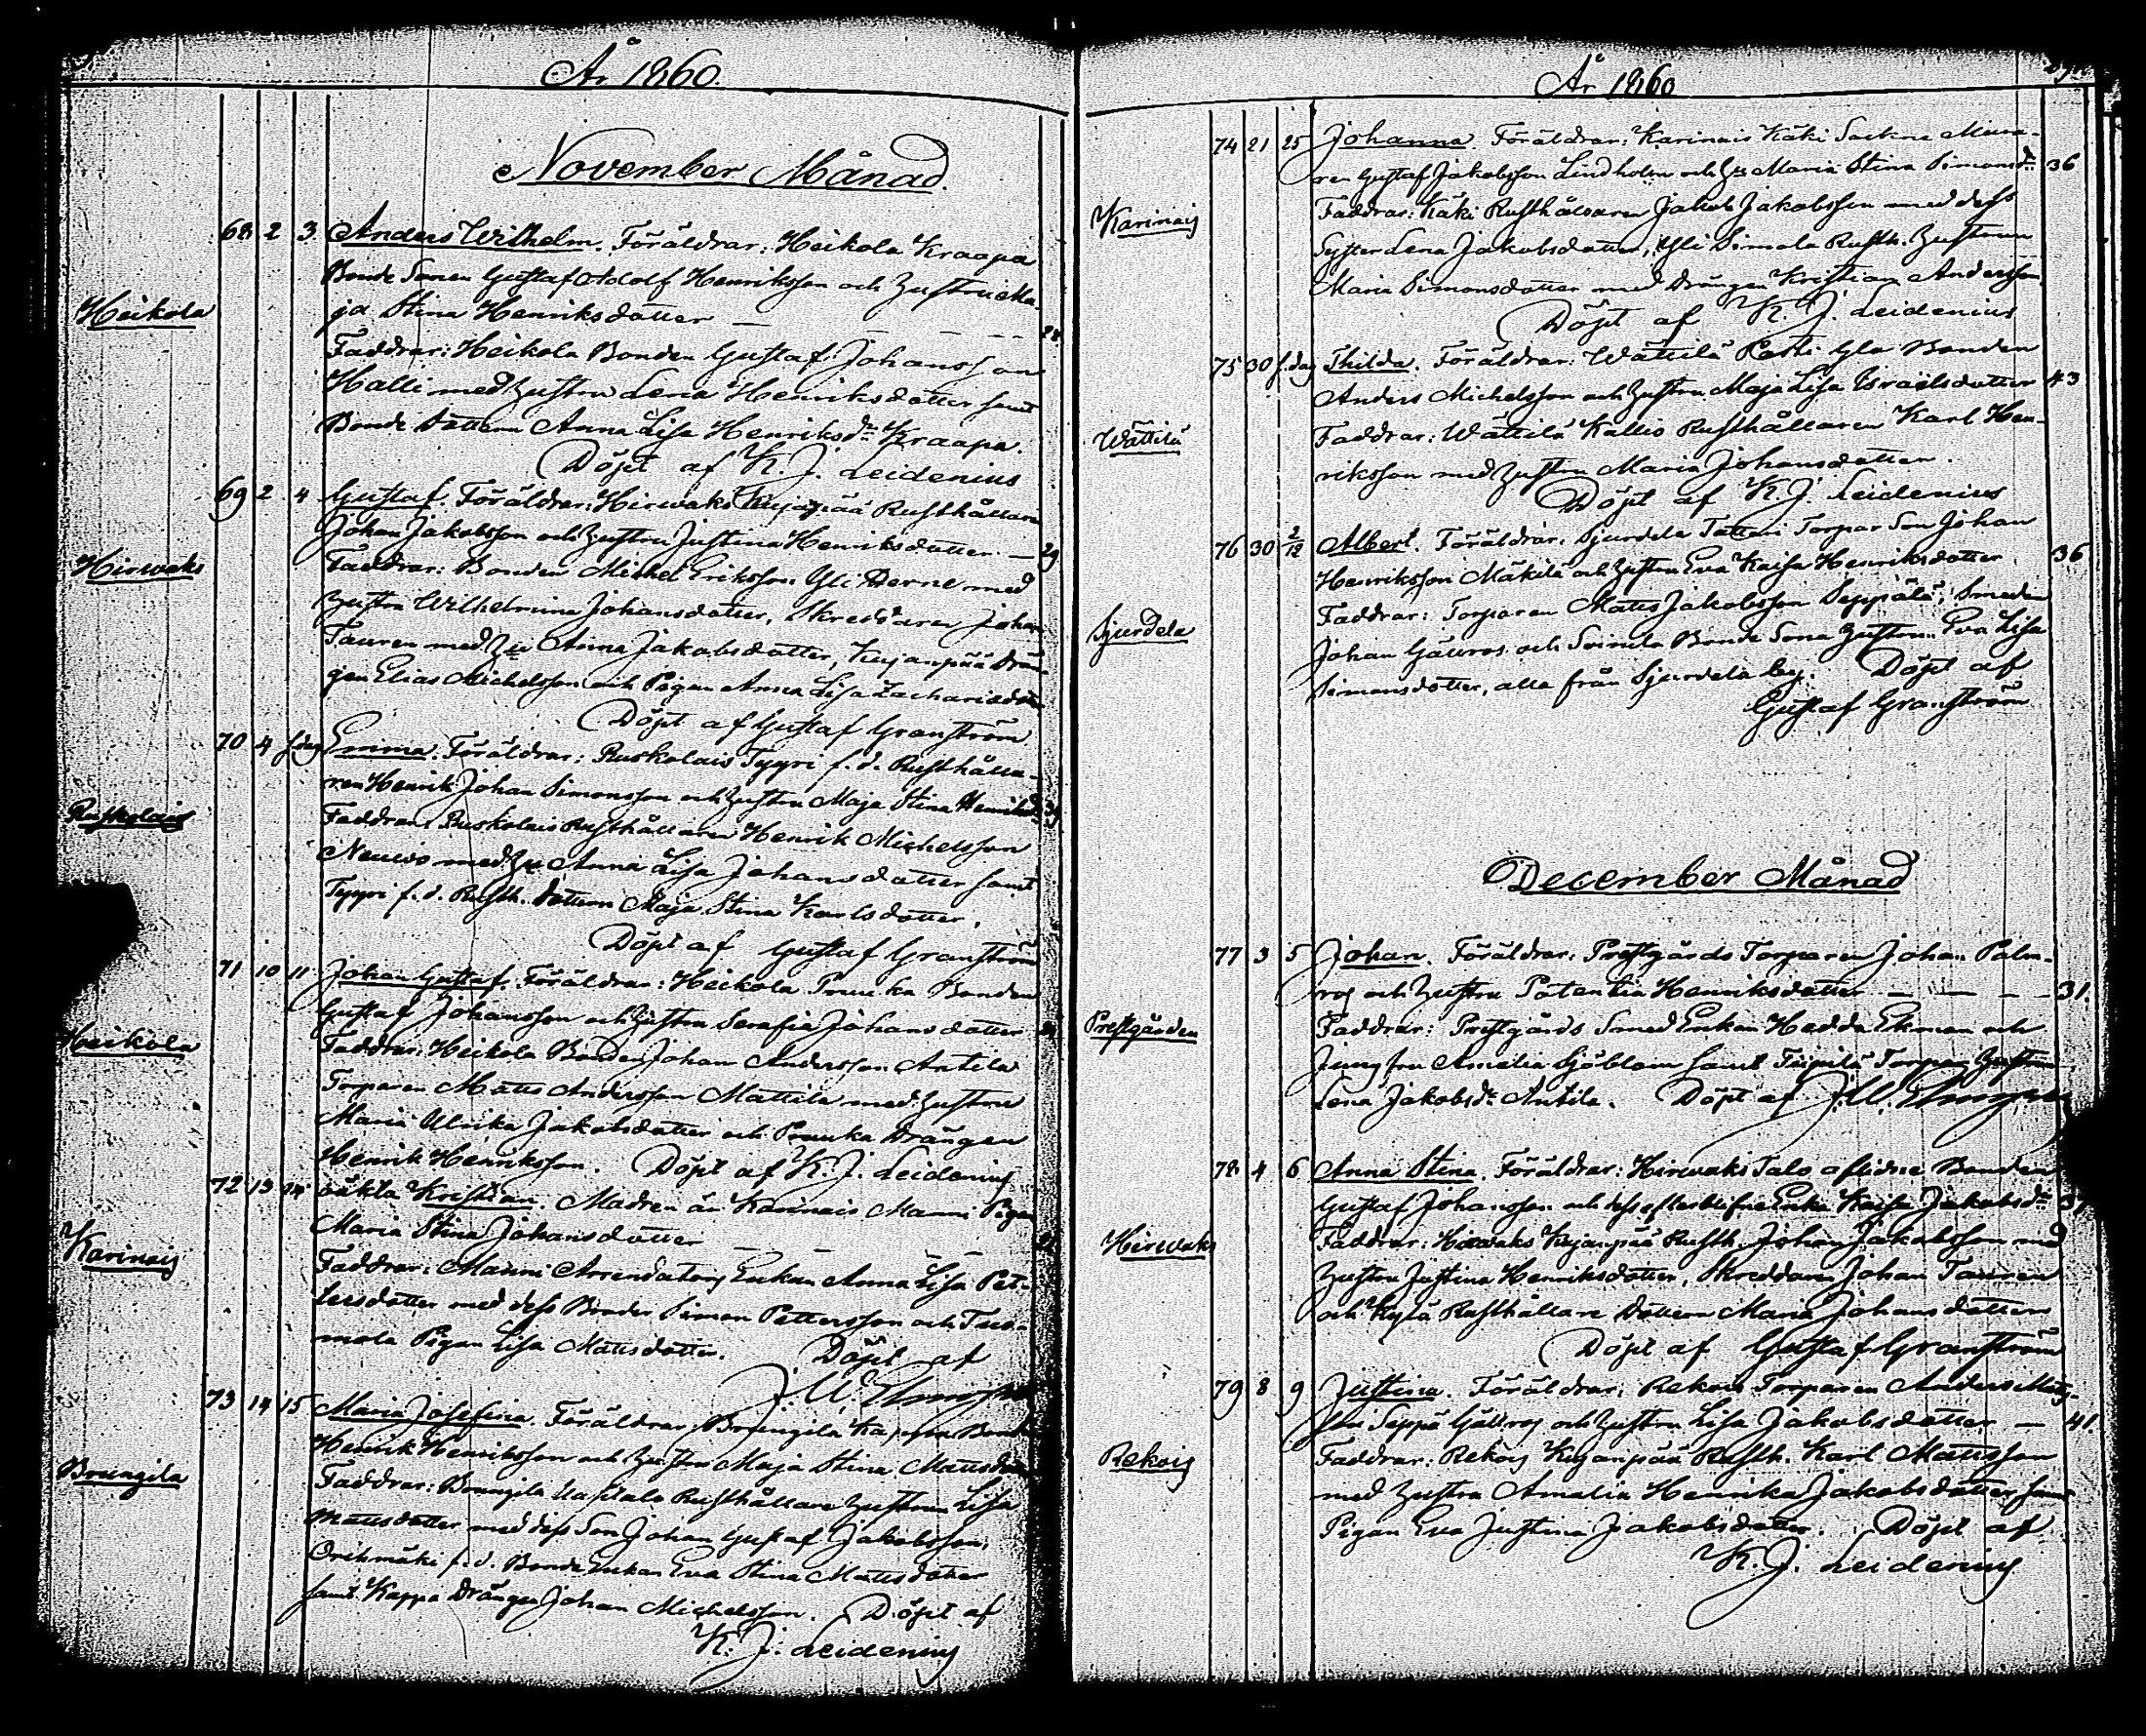 År 1860.
November Månad.
Heikola
68 2 3 Anders Wilhelm. Föräldrar: Heikola Kraapa
Bonde Sonen Gustaf Adolf Henriksson och Hustru Ma-
ja Stina Henriksdotter — — — — 28
Faddrar: Heikola Bonden Gustaf Johansson
Halli med Hustru Lena Henriksdotter samt
Bonde Dottern Anna Lisa Henriksdr Kraapa.
Döpt af K. J. Leidenius
Hirwaks
69 2 4 Gustaf. Föräldrar: Hirwaks Kujanpää Rusthållare
Johan Jakobsson och Hustru Justina Henriksdotter — 29
Faddrar: Bonden Michel Eriksson Yli Perne med
Hustru Wilhelmina Johansdotter, Skreddaren Johan
Tauren med Hu Anna Jakobsdotter, Kujanpää Drän-
gen Elias Michelsson och Pigan Anna Lisa Zachariedotter
Döpt af Gustaf Granström
Ruskolais
70 4 f.dag Emma. Föräldrar: Ruskolais Tyyri f. d. Rusthålla-
ren Henrik Johan Simonsson och Hustru Maja Stina Henriksdr
Faddrar: Ruskolais Rusthållaren Henrik Michelsson
med Hu Anna Lisa Johansdotter samt
Tyyri f. d. Rusth. Dottern Maja Stina Karlsdotter.
Döpt af Gustaf Granström
Heikola
71 10 11 Johan Gustaf. Föräldrar: Heikola Prunka Bonden
Gustaf Johansson och Hustru Serafia Johansdotter
Faddrar: Heikola Bonden Johan Andersson Antila
Torparen Matts Andersson Mattila med Hustru
Maria Ulrika Jakobsdotter och Prunka Drängen
Henrik Henriksson. Döpt af K. J. Leidenius
Karinais
72 13 14 oäkta Kristian. Modren är Karinais Manni Pigan
Maria Stina Johansdotter — — — —
Faddrar: Manni Arrendators Enkan Anna Lisa Pet-
tersdotter med dess Broder Simon Pettersson och Tuo-
mola Pigan Lisa Mattsdotter. Döpt af
J. W. Elmgren
Brungila
73 14 15 Maria Josefina. Föräldrar: Brungila Kappa Bonde
Henrik Henriksson och Hustru Maja Stina Mattsdotter
Faddrar: Brungila Uusitalo Rusthållare Hustrun Lisa
Mattsdotter med dess Son Johan Gustaf Jakobsson,
Orihmäki f. d. Bonde Enkan Eva Stina Mattsdotter
samt Kappa Drängen Johan Michelsson. Döpt af
K. J. Leidenius
År 1860
Karinais
74 21 25 Johanna. Föräldrar: Karinais Käki Sockne Mura-
ren Gustaf Jakobsson Lindholm och Hu Maria Stina Simonsdr 36
Faddrar: Käki Rusthållaren Jakob Jakobsson med dess
Syster Lena Jakobsdotter, Yli Simola Rusth. Hustrun
Maria Simonsdotter med Drängen Kristian Andersson
Döpt af K. J. Leidenius
Wättilä
75 30 f.dag Thilda. Föräldrar: Wättilä Pasti Yla Bonden
Anders Michelsson och Hustru Maja Lisa Israelsdotter 43
Faddrar: Wättilä Kallio Rusthållaren Karl Hen-
riksson med Hustru Maria Johansdotter.
Döpt af K. J. Leidenius
Sjurdela
76 30 2/12 Albert. Föräldrar: Sjurdela Tattari Torpar Son Johan
Henriksson Mäkilä och Hustru Eva Kaisa Henriksdotter 36
Faddrar: Torparen Matts Jakobsson Seppälä, Smeden
Johan Gäuros och Soinila Bonde Sona Hustrun Eva Lisa
Simonsdotter, alla från Sjurdela by. Döpt af
Gustaf Granström
December Månad
Prestgården
77 3 5 Johan. Föräldrar: Prestgårds Torparen Johan Palm-
ros och Hustru Potentia Henriksdotter — — — 31.
Faddrar: Prestgårds Smed Enkan Hedda Ekman och
Jungfru Amalia Sjöblom samt Torpar Hustrun
Lena Jakobsdr Antila. Döpt af J. W. Elmgren
Hirwaks
78 4 6 Anna Stina. Föräldrar: Hirwaks Talo aflidne Bonden
Gustaf Johansson och dess efterblefne Enka Kaisa Jakobsdr
Faddrar: Hirwaks Kujanpää Rusth. Johan Jakobsson med
Hustru Justina Henriksdotter, Skreddaren Johan Tauren
och Kylä Rusthållare Dottern Maria Johansdotter
Döpt af Gustaf Granström
Rekois
79 8 9 Justina. Föräldrar: Rekois Torparen Anders Matts-
son Seppä Gällros och Hustru Lisa Jakobsdotter — 41.
Faddrar: Rekois Kujanpää Rusth. Karl Mattsson
med Hustru Amalia Henrika Jakobsdotter samt
Pigan Eva Justina Jakobsdotter. Döpt af
K. J. Leidenius